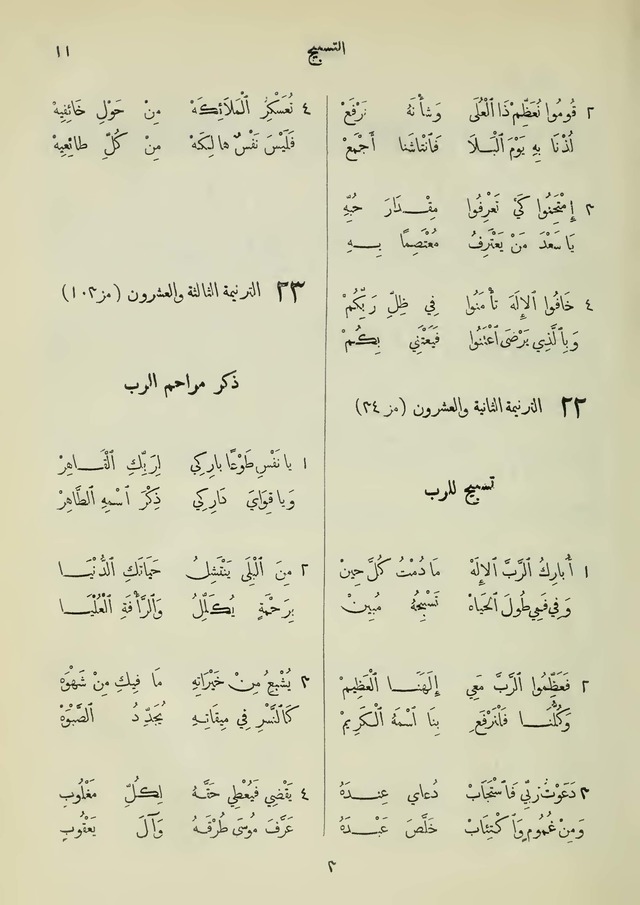 التسبيح ١١
٢ قُومُوا نُعَظِّمْ ذَا ٱلْعُلَى وَشَأْنَهُ نَرْفَعْ
لُذْنَا بِهِ يَوْمَ ٱلْبَلَا فَٱنْتَاشَنَا أَجْمَعْ
٣ إِمْتَحِنُوا كَيْ تَعْرِفُوا مِقْدَارَ حُبِّهِ
يَا سَعْدَ مَنْ يَعْتَرِفُ مُعْتَصِمًا بِهِ
٤ خَافُوا ٱلإِلَهَ تَأْمَنُوا فِي ظِلِّ رَبِّكُمْ
وَبِٱلَّذِي يَرْضَى ٱعْتَنُوا فَيَعْتَنِي بِكُمْ
٢٢ الترنيمة الثانية والعشرون (مز ٣٤)
تسبيح للرب
١ أُبَارِكُ ٱلرَّبَّ ٱلإِلَهْ مَا دُمْتُ كُلَّ حِينْ
وَفِي فَمِي طُولَ ٱلْحَيَاهْ تَسْبِيحُهُ مُبِينْ
٢ فَعَظِّمُوا ٱلرَّبَّ مَعِي إِلَهَنَا ٱلْعَظِيمْ
وَكُلُّنَا فَلْنَرْفَعِ بِنَا ٱسْمَهُ ٱلْكَرِيمْ
٣ دَعَوْتُ رَبِّي فَٱسْتَجَابْ دُعَايَ عِنْدَهُ
وَمِنْ غُمُومٍ وَٱكْتِئَابْ خَلَّصَ عَبْدَهُ
٤ يُعَسْكِرُ ٱلْمَلَائِكَهْ مِنْ حَوْلِ خَائِفِيهْ
فَلَيْسَ نَفْسٌ هَالِكَهْ مِنْ كُلِّ طَائِعِيهْ
٢٣ الترنيمة الثالثة والعشرون (مز ١٠٣)
ذكر مراحم الرب
١ يا نَفْسِ طَوْعًا بارِكِي لِرَبِّكِ ٱلْقَاهِرْ
وَيا قِوَايَ دَارِكِي ذِكْرَ ٱسْمِهِ ٱلطَّاهِرْ
٢ مِنَ ٱلْبِلَى يَنْتَشِلُ حَيَاتَكِ ٱلدُّنْيَا
بِرَحْمَةٍ يُكَلِّلُ وَٱلرَّأْفَةِ ٱلْعُلْيَا
٣ يُشْبِعُ مِنْ خَيْرَاتِهِ مَا فِيكِ مِنْ شَهْوَهْ
كَٱلنَّسْرِ فِي مِيقَاتِهِ يُجَدِّدُ ٱلصَّبْوَهْ
٤ يَقْضِي فَيُعْطِي حَقَّهُ لِكُلِّ مَغْلُوبِ
عَرَّفَ مُوسَى طُرْقَهُ وَآلَ يَعْقُوبِ
٢